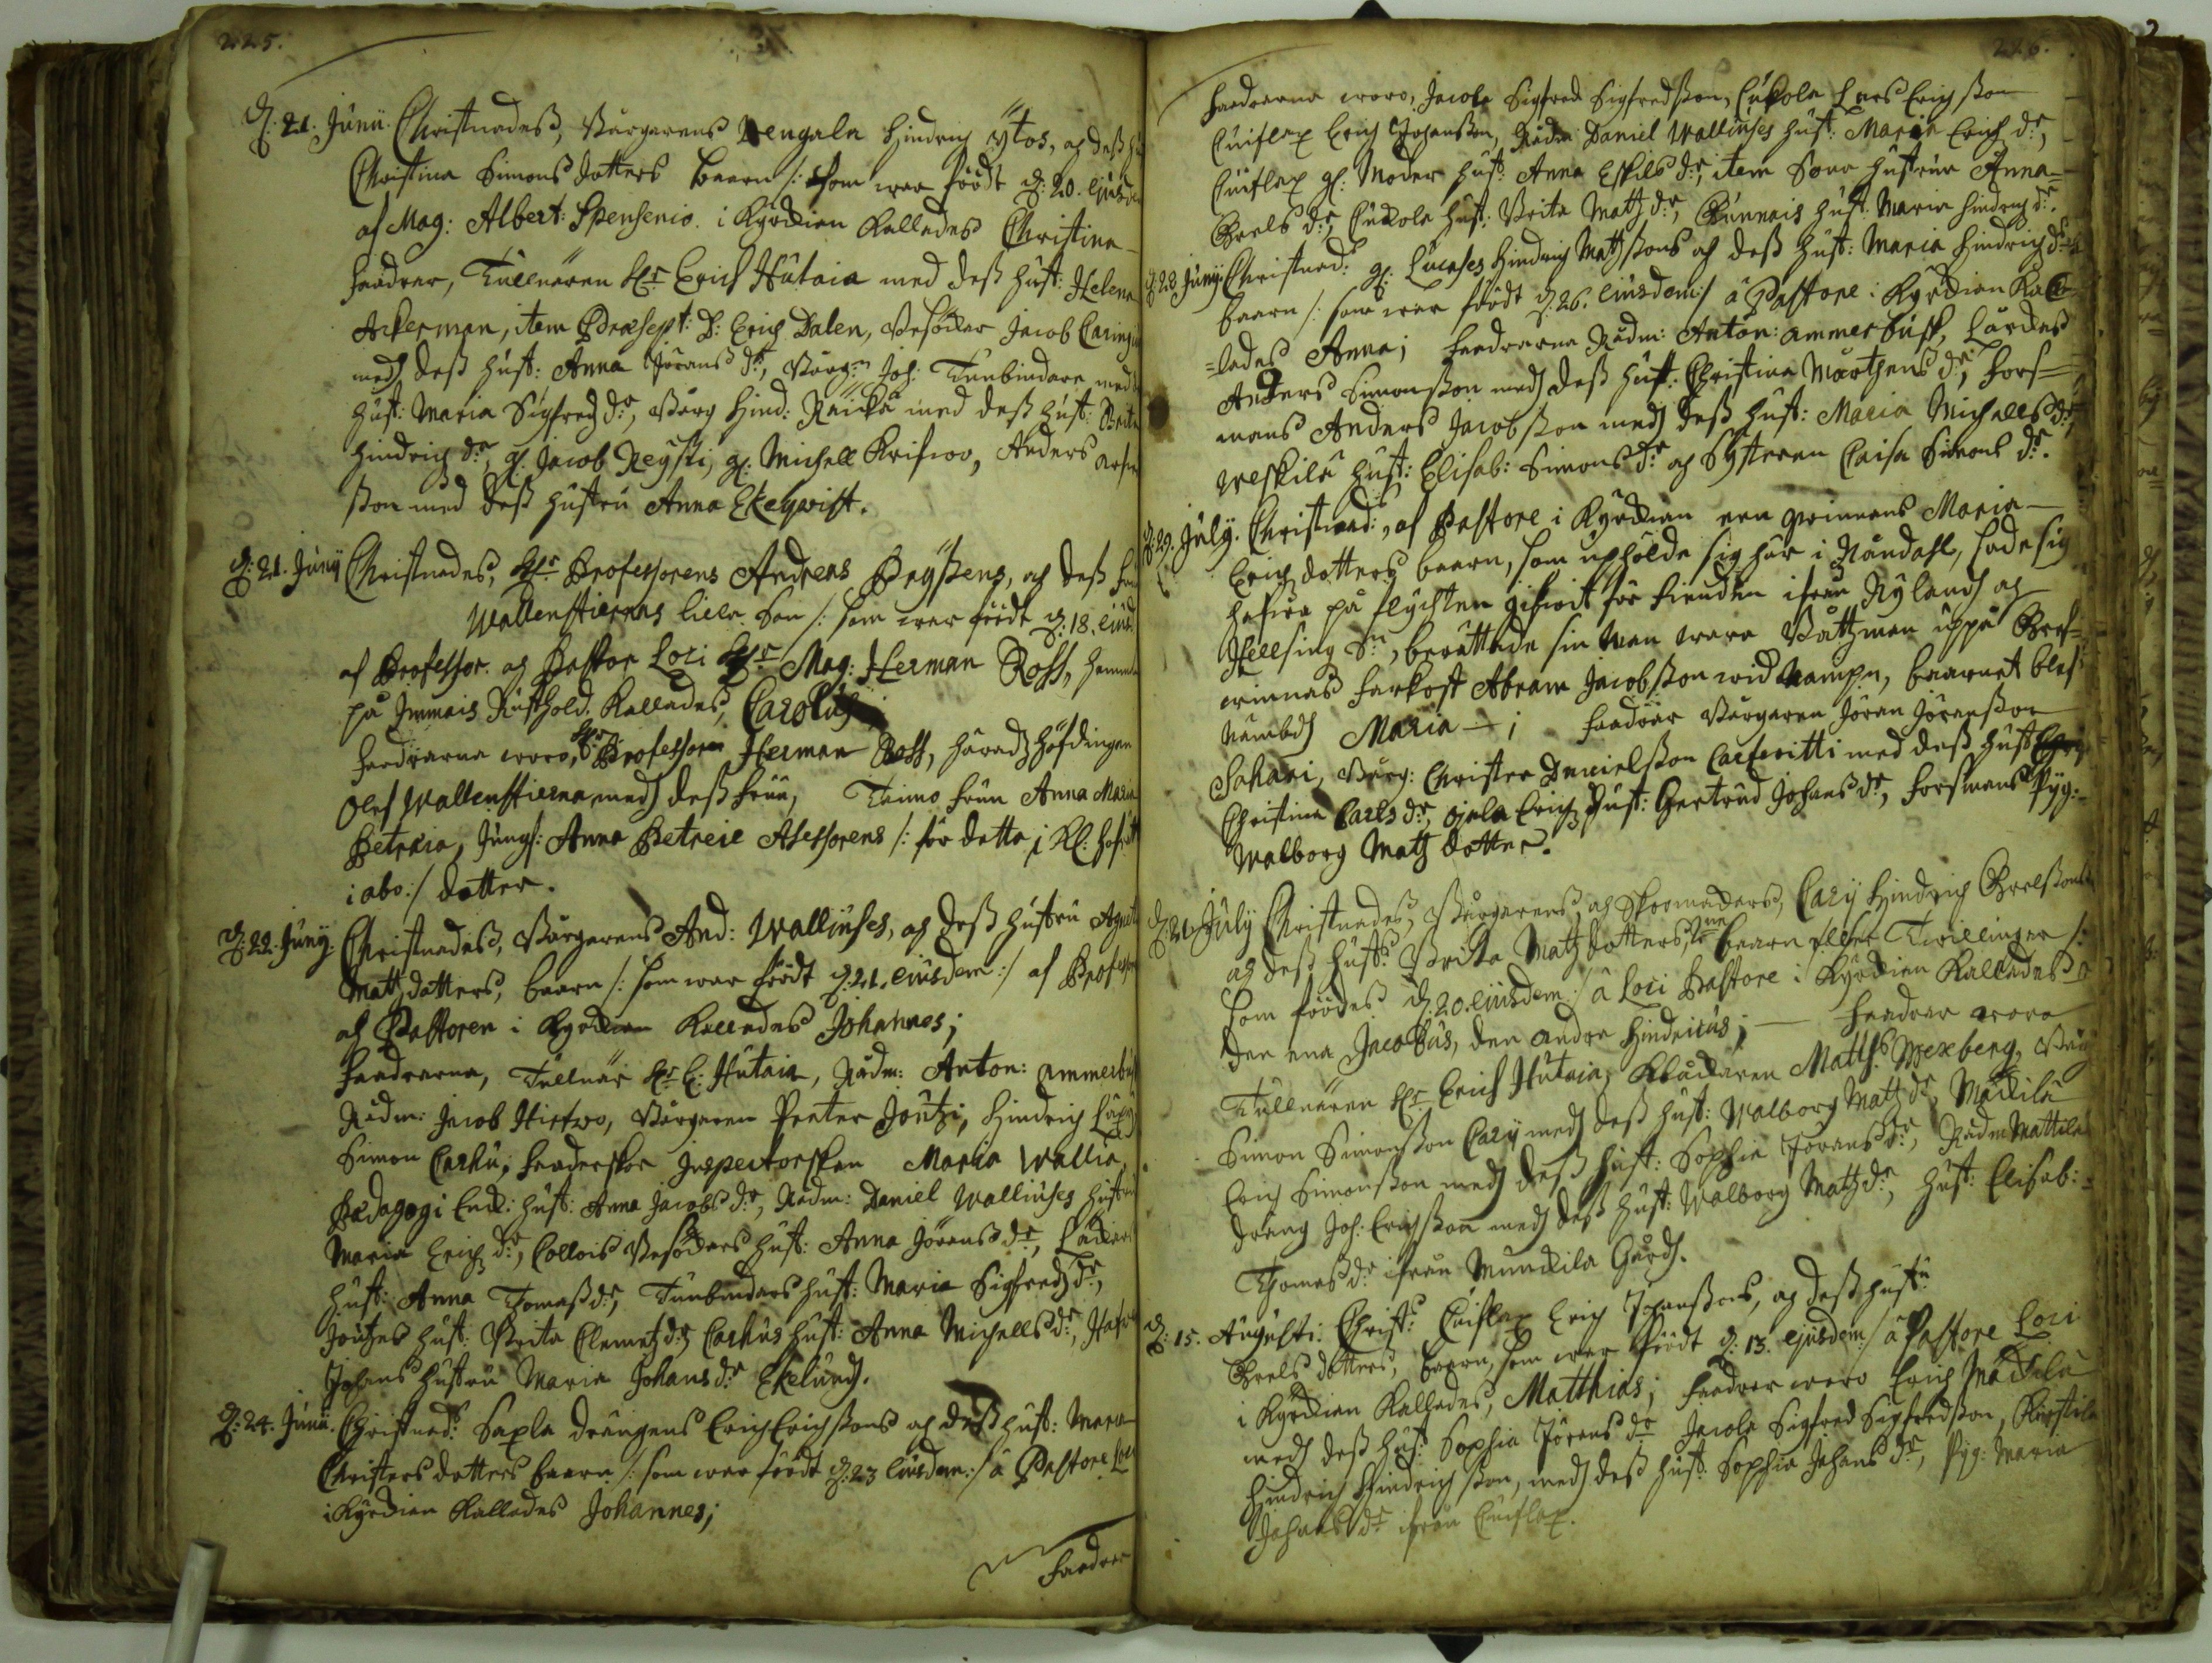 225.
d: 21. Junii. Christnadeß, Borgarens Hindrich Ytos, och deß
Christina Simons dotters baarn /: som war födt d: 20. ejusdem
af Mag: Albert: Spensenio. i Kyrckian Kallades Christina
faadrar, Tullnären Hr Erich Hutain med deß hust: Helena
Ackerman, item Præsept: D: Erich Dalen, Besökar Jacob
med deß hust: Anna Jörans dr, Borg: Joh: Tunbindare med
hust: Maria Sigfredz dr, Borg Hind: Räickä med deß hust: Brita
Hindrich dr, gl. Jacob Reyski, gl. Michell Anders
ßon med deß hustru Anna Ekeqwist.
d: 21. Junij Christnades, Hr Professorens Andreas Pryßens, och deß
Wallenstiernas lilla Son /: som war födt d: 18. ejusd
af Professor. och Pastor Loci Hr Mag: Herman Ross, hemma
på Jmmais Rusthold. Kallades, Carolus
faadrarna woro, Hr Professoren Herman Ross, häradz höfdingen
Olof Wallenstierna, med deß fruu, Timo fruu Anna Maria
Petræia, Jungf: Anna Petreie Assessorens /: för detta i Kl: hofrätt
i abo :/ dotter.
d: 22. Junij. Christnadeß, Borgarens And: Walliuses, och deß hustru Agneta
Matz dotters, baarn /: som war födt d: 21. ejusdem :/ af Professor
och Pastoren i Kyrckian Kallades Johannes;
faadrarna, Tullnär Hr E: Hutain, Rådm: Anton: Ammerbus
Rådm: Jacob Hirfwo, Borgaren Peeter Joutzi, Hindrich
Simon Carhu, faderskor Jnspectorskan Maria Wallia,
Pædagogi hust: Anna Jacobs dr, Rådm: Daniel Walliuses hustru
Maria Erich dr, Collois Besökars hust: Anna Jörans dr,
hust: Anna Tomaß dr, Tunbindars hust: Maria Sigfredz dr,
Joutzes hust: Brita Clemetz dr Carhus hust: Anna Michells dr,
Johans hustru Maria Johans dr Ekelund.
d: 24. Junii. Christnad: Saxla drängens Erich Erichßons och deß hust: Maria
Christers dotters baarn /: som war födt d: 23 ejusdem :/ â Pastore Loci
i Kyrckian Kallades Johannes;
faadrar
226.
faadrarna woro, Jacola Sigfred Sigfredßon, Cukola Lars Erichßon
Cuiflax Erich Johanßon, Rådm: Daniel Walliuses hust: Maria Erich dr,
Cuiflax gl: Moder hust: Anna Eskils dr, item Sona hustrun Anna
Grels dr, Cuckola hust: Brita Matz dr, Cunnais hust: Maria Hindrich dr.
d: 28 Junij Christnad: gl: Lucases Hindrich Matzßons och deß hust: Maria Hindrich dr
baarn /: som war födt d: 26. ejusdem :/ â Pastore i Kyrckian Kal-
=lades Anna; faadrarna Rådm: Anton: Ammerbusk, Lärckas
Anders Simonßon med deß hust: Christina Mårtens dr, Fors=
mans Anders Jacobßon med deß hust: Maria Michells dr,
Weskilä hust: Elisab: Simons dr och Systeren Caisa Simons dr.
d: 29. July. Christnad:, af Pastore i Kyrckian een qwinnans Maria
Erich dotters baarn, som uphölde sig här i Råndahl, hade sig
på flychten för fienden ifrån Nyland och
Hellsing Sn, berättade sin Man wara Båtzman uppå
farkost Abram Jacobßon wid Nampn, baarnet blef
nämbd Maria; faadrar Borgaren Jöran Jöranßon
Sahari, Borg: Christer Danielßon med deß hust
Christina Carls dr, Ojala Erich hust: Gertrud Johans dr, Forsmans Pyg:
Walborg Matz dotter.
d: 21 July Christnades, Borgarens, och Skomakers, Cary Hindrich Grelßons
och deß hust: Brita Matz dotters, 2ne baarn eller Twillingar /:
som föödes d: 20. ejusdem :/ â Loci Pastore i Kyrckian Kalladeß
den ena Jacobus, den andra Hindricus; faadrar woro
Tullnären Hr Erich Hutain, Klåckaren Matths: Wexberg, Borg
Simon Simonßon Cary med deß hust: Walborg Matz dr, Mäckilä
Erich Simonßon med deß hust: Sophia Jörans dr, Rådm Mattila
dräng Joh: Erichßon med deß hust: Walborg Matz dr, hust: Elisab:
Thomas dr ifrån Munckila Gård.
d: 15. Augusti. Christ: Cuiflax Erich Johanßons, och deß hustru
Grels dotters, baarn, som war födt d: 13. ejusdem :/ â Pastore Loci
i Kyrckian Kallades, Matthias; faadrar woro Erich Mäckilä
med deß hust: Sophia Jörens dr Jacola Sigfred Sigfredßon,
Hindrich Hindrichßon, med deß hust: Sophia Johans dr, Pyg: Maria
Johans dr ifrån Cuiflax.